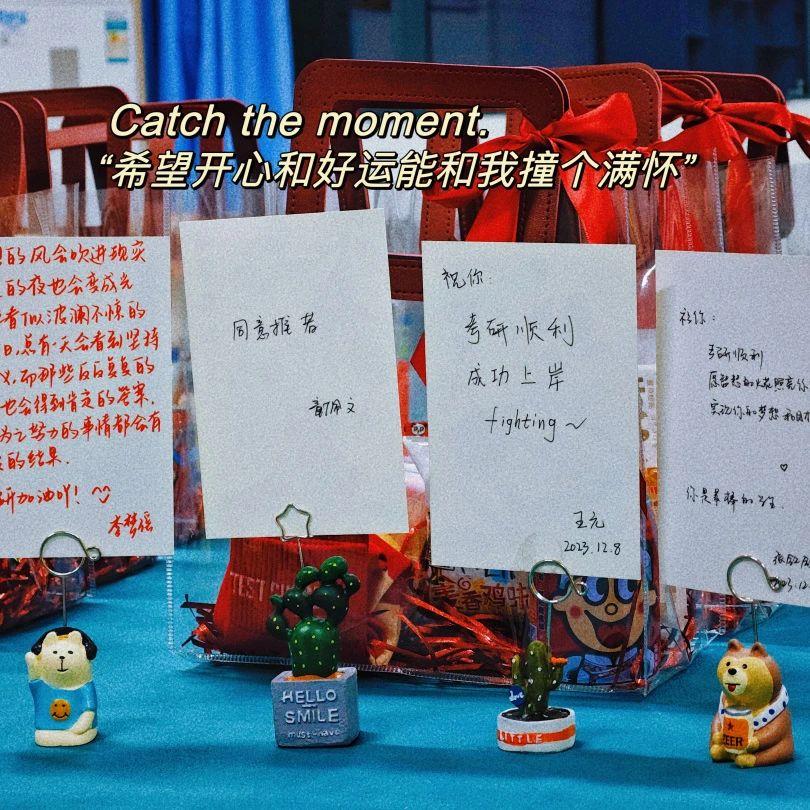 Catch the moment.
“希望开心和好运能和我撞个满怀”
的风会吹进现实
的夜也会变成光
看似波澜不惊的
日,总有一天会看到坚持
义,而那些反反复复的
也会得到肯定的答案.
为之努力的事情都会有
的结果.
研加油吖!
李梦瑶
同意推荐
祝你:
考研顺利
成功上岸
fighting~
王元
2023.12.8
祝你:
考研顺利
实现你的梦想和目
你是最棒的
TEST
香鸡味
HELLO
SMILE
must-have
love
LITTLE
BEER